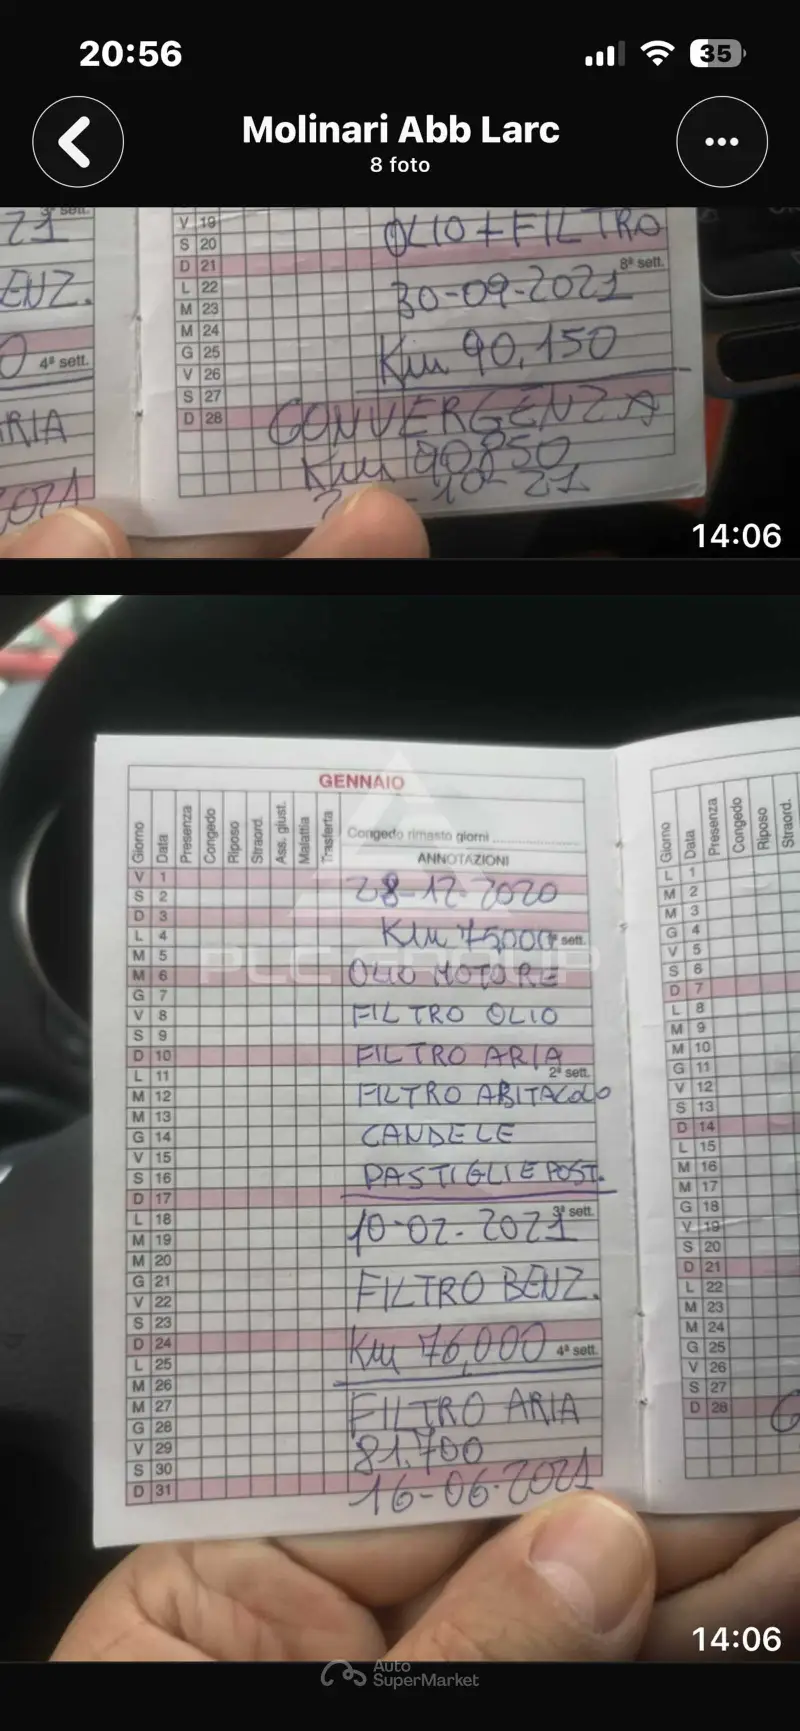 20:56
35
Molinari Abb Larc
8 foto
21
3ª sett.
ENZ.
0 4ª sett.
ARIA
2021
V 19
S 20
D 21
L 22
M 23
M 24
G 25
V 26
S 27
D 28
OLIO + FILTRO
8ª sett.
30-09-2021
Km 90,150
CONVERGENZA
Km 90850
-10-21
14:06
GENNAIO
Giorno Data Presenza Congedo Riposo Straord. Ass. giust. Malattia Trasferta
Congedo rimasto giorni
ANNOTAZIONI
V 1
S 2 28-12-2020
D 3
L 4 Km 75000 1ª sett.
M 5
M 6 OLIO MOTORE
G 7
V 8 FILTRO OLIO
S 9
D 10 FILTRO ARIA
L 11 2ª sett.
M 12 FILTRO ABITACOLO
M 13
G 14 CANDELE
V 15
S 16 PASTIGLIE POST.
D 17
L 18 3ª sett.
M 19 10-02-2021
M 20
G 21
V 22 FILTRO BENZ.
S 23
D 24
L 25 Km 76,000 4ª sett.
M 26
M 27
G 28 FILTRO ARIA
V 29
S 30 81.700
D 31 16-06-2021
Giorno Data Presenza Congedo Riposo Straord.
L 1
M 2
M 3
G 4
V 5
S 6
D 7
L 8
M 9
M 10
G 11
V 12
S 13
D 14
L 15
M 16
M 17
G 18
V 19
S 20
D 21
L 22
M 23
M 24
G 25
V 26
S 27
D 28
PLC GROUP
14:06
Auto
SuperMarket